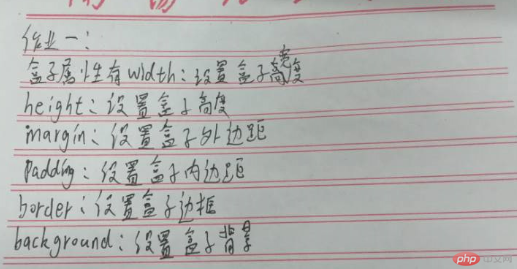 作业一:
盒子属性有width:设置盒子宽度
height:设置盒子高度
margin:设置盒子外边距
padding:设置盒子内边距
border:设置盒子边框
background:设置盒子背景
php